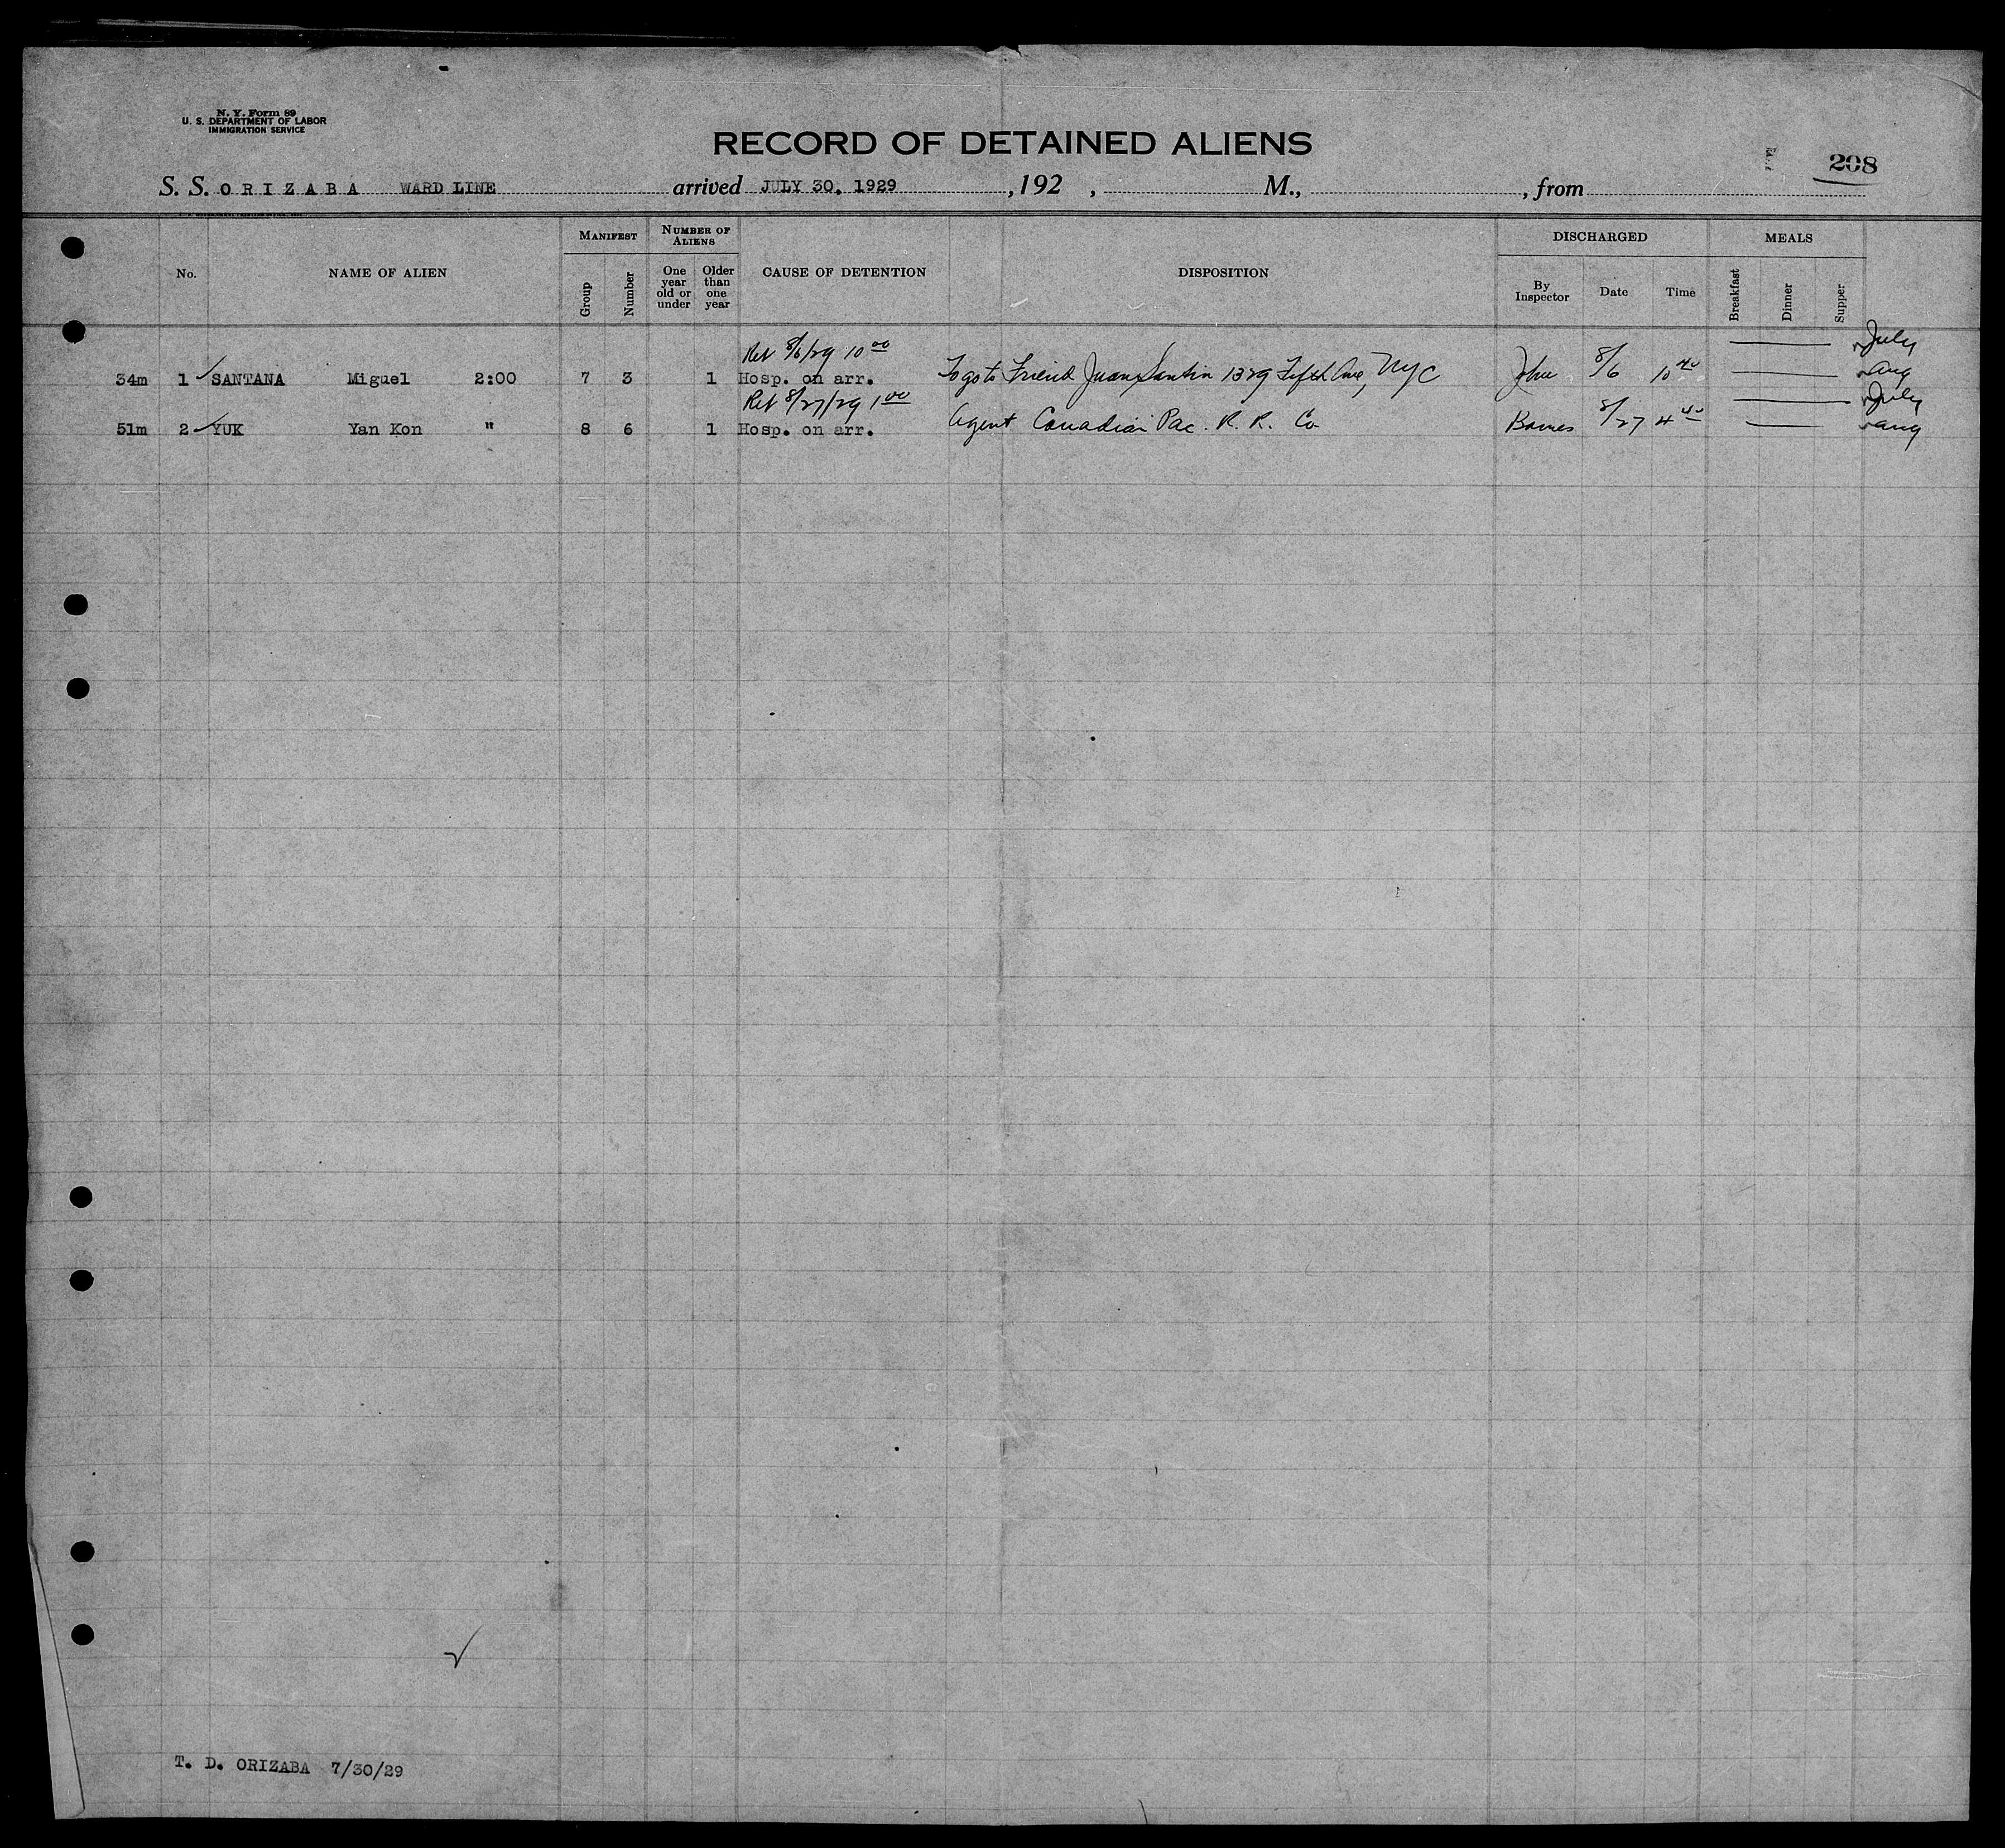 N. Y. Form 89
U. S. DEPARTMENT OF LABOR
IMMIGRATION SERVICE
RECORD OF DETAINED ALIENS
208
S. S. ORIZABA WARD LINE arrived JULY 30, 1929, 192 , M., , from
No. NAME OF ALIEN MANIFEST Group Number NUMBER OF ALIENS One year old or under Older than one year CAUSE OF DETENTION DISPOSITION DISCHARGED By Inspector Date Time MEALS Breakfast Dinner Supper
Ret 8/6/29 10 00 July
34m 1 SANTANA Miguel 2:00 7 3 1 Hosp. on arr. To go to Friend Juan Santin 1329 Fifth Ave, NYC 8/6 10 40 Aug
Ret 8/27/29 1 00 July
51m 2 YUK Yan Kon " 8 6 1 Hosp. on arr. Agent Canadian Pac. R. R. Co Barnes 8/27 4 40 aug
T. D. ORIZABA 7/30/29